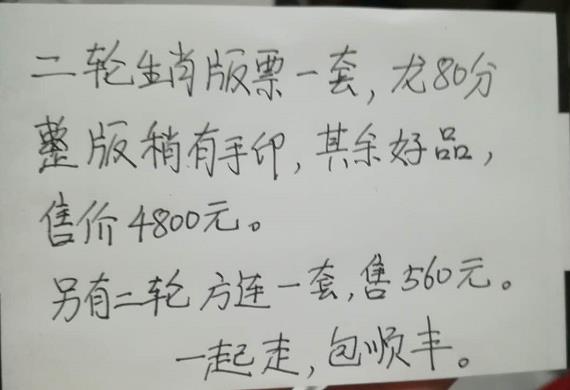 二轮生肖版票一套，龙80分
整版稍有手印，其余好品，
售价4800元。
另有二轮方连一套，售560元。
一起走，包顺丰。